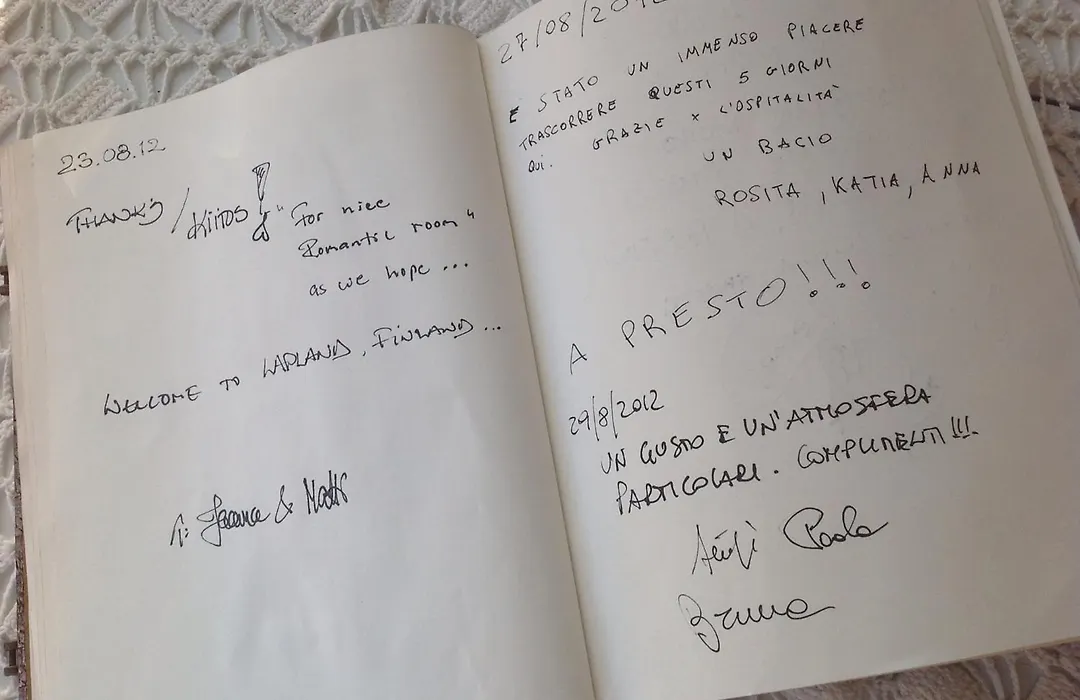 23.08.12
THANKS / KIITOS! "For nice
Romantic room"
as we hope ...
WELLCOME TO LAPLAND, FINLAND...
T: &
27/08/2012
E STATO UN IMMENSO PIACERE
TRASCORRERE QUESTI 5 GIORNI
QUI. GRAZIE x L'OSPITALITÀ
UN BACIO
ROSITA, KATIA, ANNA
A PRESTO!!!
29/8/2012
UN GUSTO E UN'ATMOSFERA
PARTICOLARI. COMPLIMENTI!!!
Paola
Bruna